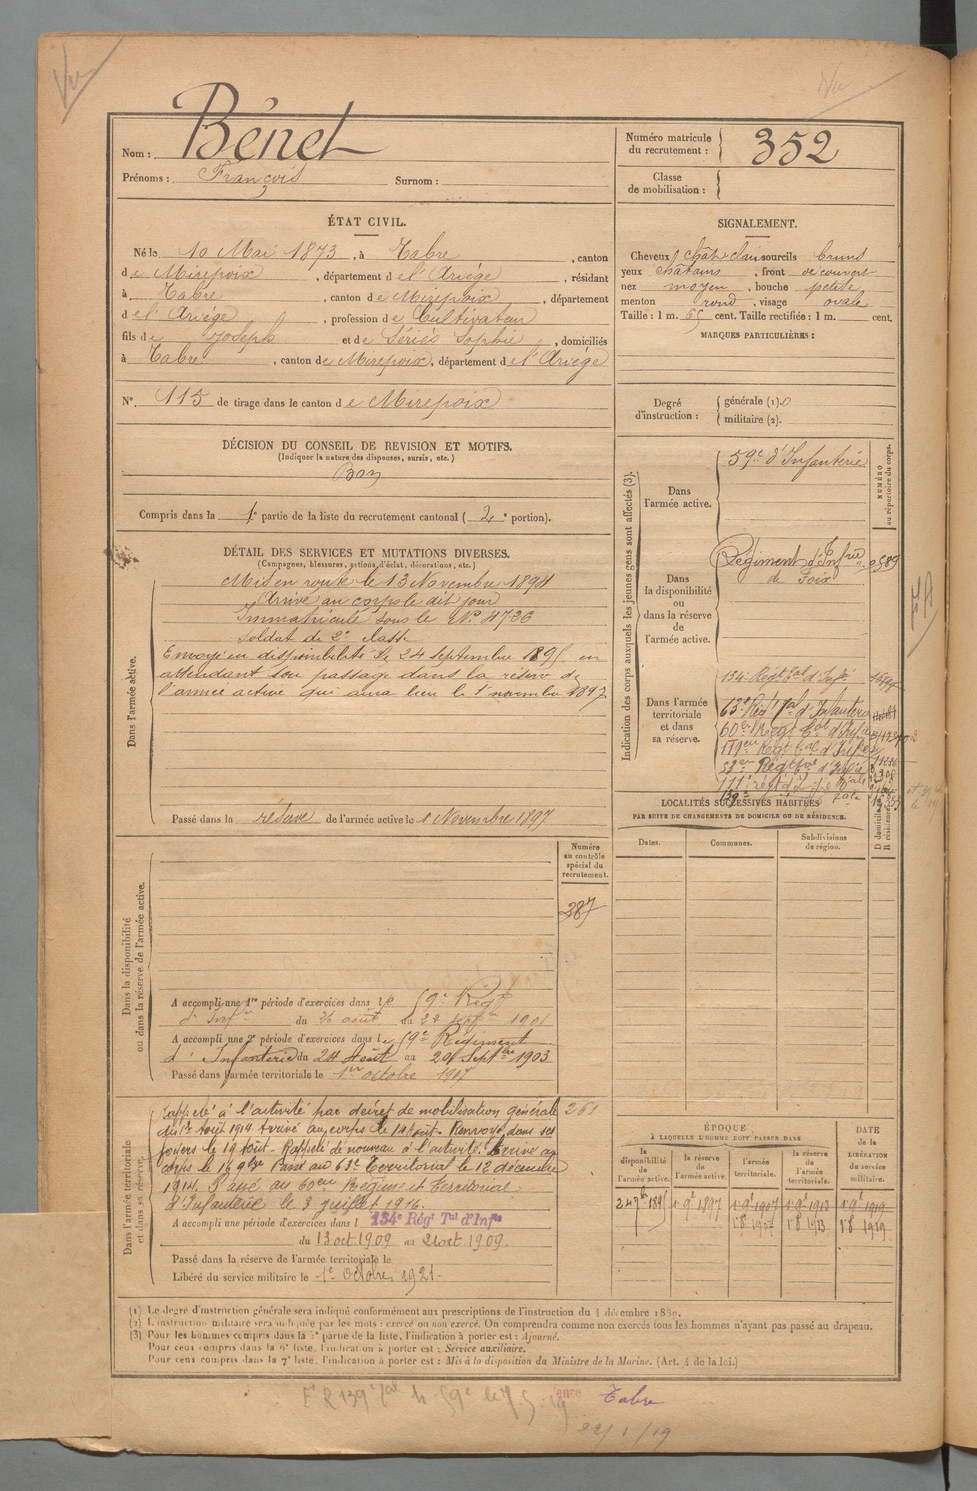 Nom : Bénet
Prénoms : François Surnom :
Numéro matricule du recrutement : 352
Classe de mobilisation :
ÉTAT CIVIL.
Né le 10 Mai 1873, à Tabre, canton
de Mirepoix, département de l'Ariège, résidant
à Tabre, canton de Mirepoix, département
de l'Ariège, profession de Cultivateur
fils de Joseph et de Sériès Sophie, domiciliés
à Tabre, canton de Mirepoix, département de l'Ariège
N° 115 de tirage dans le canton de Mirepoix
SIGNALEMENT.
Cheveux chât clair sourcils bruns
yeux châtains, front découvert
nez moyen, bouche petite
menton rond, visage ovale
Taille : 1 m. 65 cent. Taille rectifiée : 1 m. cent.
MARQUES PARTICULIÈRES :
Degré d'instruction : générale (1). 0
militaire (2).
DÉCISION DU CONSEIL DE REVISION ET MOTIFS.
(Indiquer la nature des dispenses, sursis, etc.)
Bon
Compris dans la 1e partie de la liste du recrutement cantonal (2e portion).
DÉTAIL DES SERVICES ET MUTATIONS DIVERSES.
(Campagnes, blessures, actions d'éclat, décorations, etc.)
Dans l'armée active.
Mis en route le 13 Novembre 1894
Arrivé au corps le dit jour
Immatriculé sous le N° 4736
Soldat de 2e classe
Envoyé en disponibilité le 24 septembre 1895 en
attendant son passage dans la réserve de
l'armée active qui aura lieu le 1er novembre 1897
Passé dans la réserve de l'armée active le 1 Novembre 1897
Indication des corps auxquels les jeunes gens sont affectés (3).
NUMÉRO au répertoire du corps.
Dans l'armée active.
59e d'Infanterie
Dans la disponibilité ou dans la réserve de l'armée active.
Régiment d'Infrie
de Foix
Dans l'armée territoriale et dans sa réserve.
134 Régt tal d'Infie
63e Régt Tal d'Infanterie
LOCALITÉS SUCCESSIVES HABITÉES
PAR SUITE DE CHANGEMENTS DE DOMICILE OU DE RÉSIDENCE.
Dates. Communes. Subdivisions de région. D domicile R résidence
Dans la disponibilité ou dans la réserve de l'armée active.
Numéro au contrôle spécial du recrutement.
387
A accompli une 1re période d'exercices dans le 59e Régt
d'Infie du 26 août au 22 septbre 1901
A accompli une 2e période d'exercices dans le 59e Régiment
d'Infanterie du 24 Août au 20 Septbre 1903
Passé dans l'armée territoriale le 1er octobre 1907
Dans l'armée territoriale et dans sa réserve.
Rappelé à l'activité par décret de mobilisation générale 261
du 1er Août 1914 Arrivé au corps le 14 Août. Renvoyé dans ses
foyers le 19 Août. Rappelé de nouveau à l'activité. Arrivé au
corps le 16 9bre Passé au 63e Territorial le 12 décembre
1914. Passé au 60em Régiment Territorial
d'Infanterie le 3 juillet 1916.
A accompli une période d'exercices dans l 134e Régt Tal d'Infie
du 13 oct 1909 au 21 oct 1909.
Passé dans la réserve de l'armée territoriale le
Libéré du service militaire le 1er Octobre 1921.
ÉPOQUE
À LAQUELLE L'HOMME DOIT PASSER DANS
DATE de la LIBÉRATION du service militaire.
la disponibilité de l'armée active. la réserve de l'armée active. l'armée territoriale. la réserve de l'armée territoriale.
24 7bre 1895 1er 9bre 1897 1er 9bre 1907 1er 9bre 1913 1er 9bre 1919
1er 8bre 1907 1er 8bre 1913 1er 8bre 1919
(1) Le degré d'instruction générale sera indiqué conformément aux prescriptions de l'instruction du 4 décembre 1889.
(2) L'instruction militaire sera indiquée par les mots : exercé ou non exercé. On comprendra comme non exercés tous les hommes n'ayant pas passé au drapeau.
(3) Pour les hommes compris dans la 5e partie de la liste, l'indication à porter est : Ajourné.
Pour ceux compris dans la 6e liste, l'indication à porter est : Service auxiliaire.
Pour ceux compris dans la 7e liste, l'indication à porter est : Mis à la disposition du Ministre de la Marine. (Art. 4 de la loi.)
Tabre
22/1/19